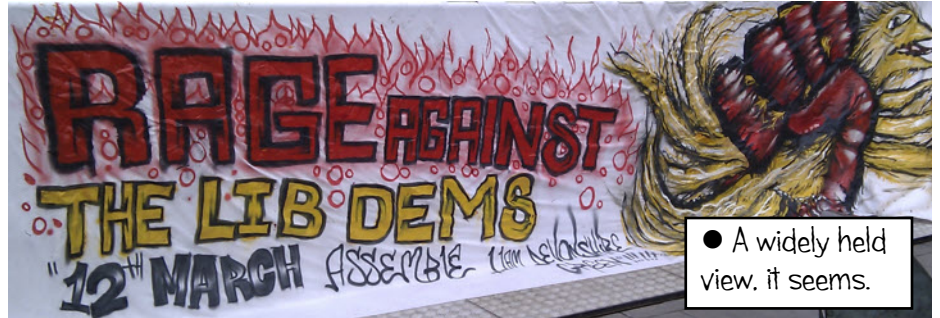 RAGE AGAINST
THE LIB DEMS
"12TH MARCH ASSEMBLE 11AM DEVONSHIRE
GREEN!!!!
● A widely held
view, it seems.